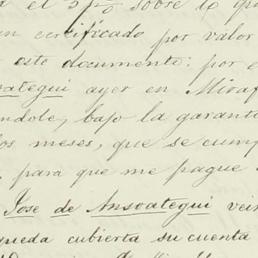 el 5 p% sobre lo q
un certificado por valor
este documento: por e
oategui ayer en Miraf
éndole, bajo la garant
los meses, que se cump
para que me pague
Jose de Ansoategui vei
queda cubierta su cuenta